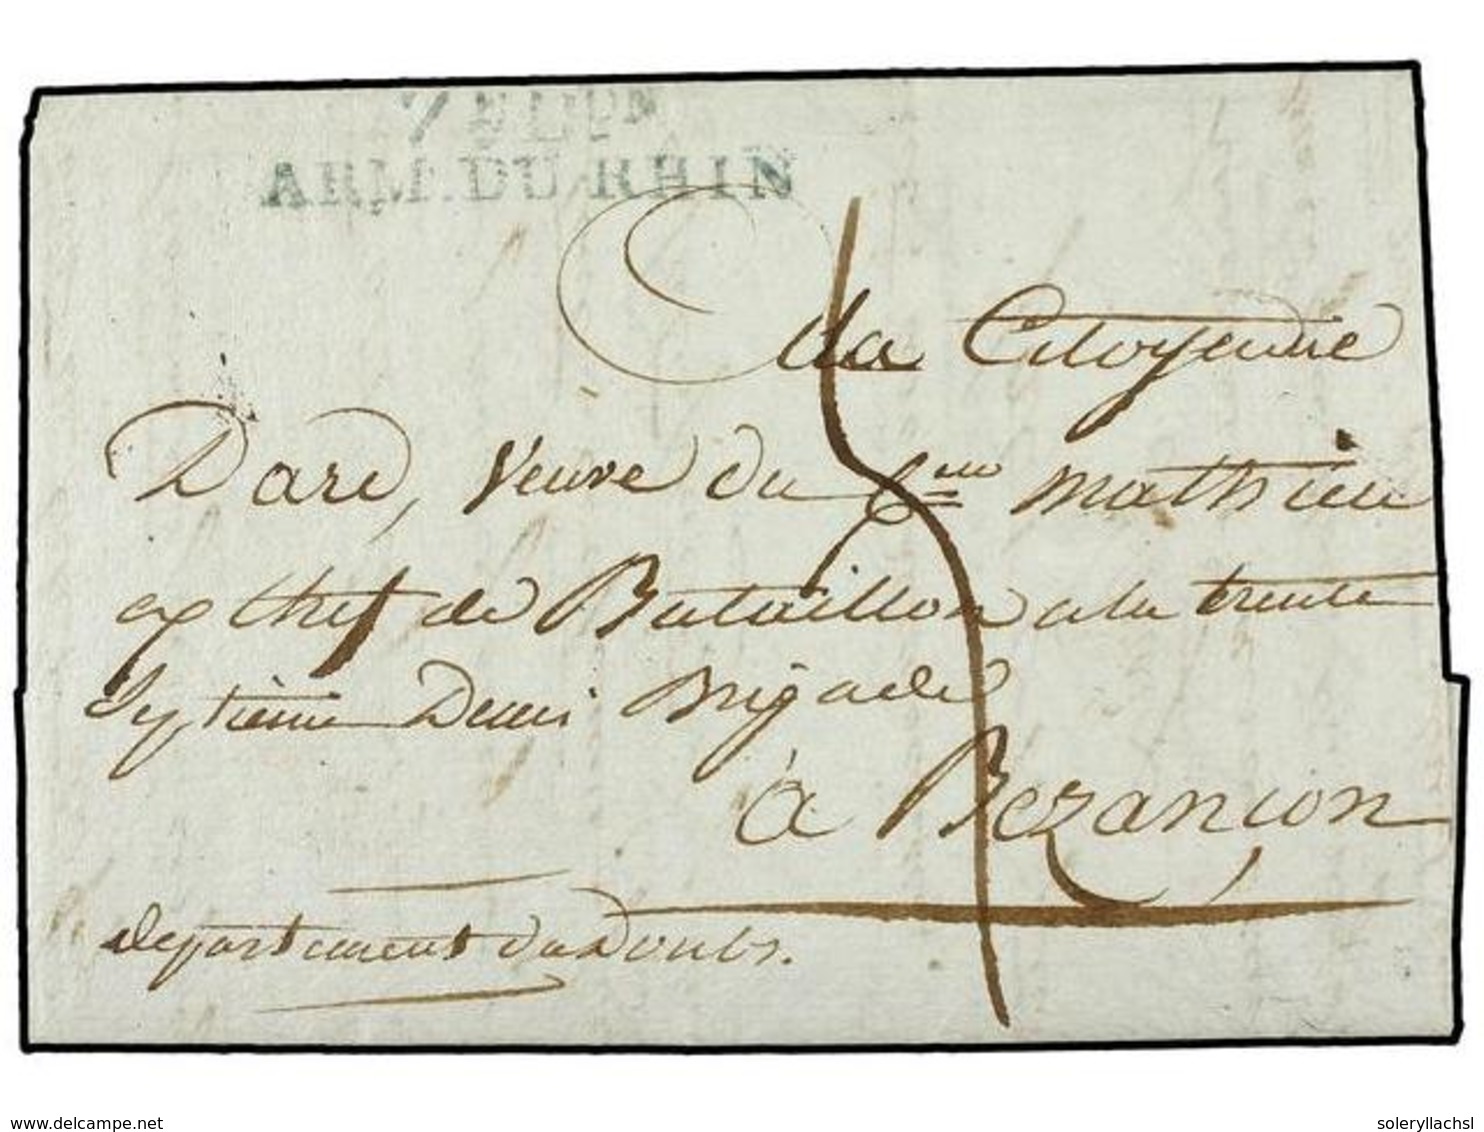 ARM. DU RHIN
La Citoyenne
Dard, Veuve du C.en Mathieu
ex chef de Bataillon a la trente
Septième Demi Brigade
à Bezançon
departement du Doubs.
delcampe.net
soleryllachsl